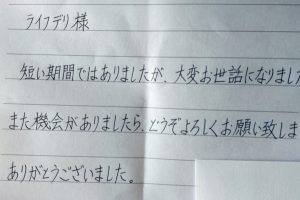 ライフデリ様
短い期間ではありましたが、大変お世話になりまし
また機会がありましたら、どうぞよろしくお願い致しま
ありがとうございました。